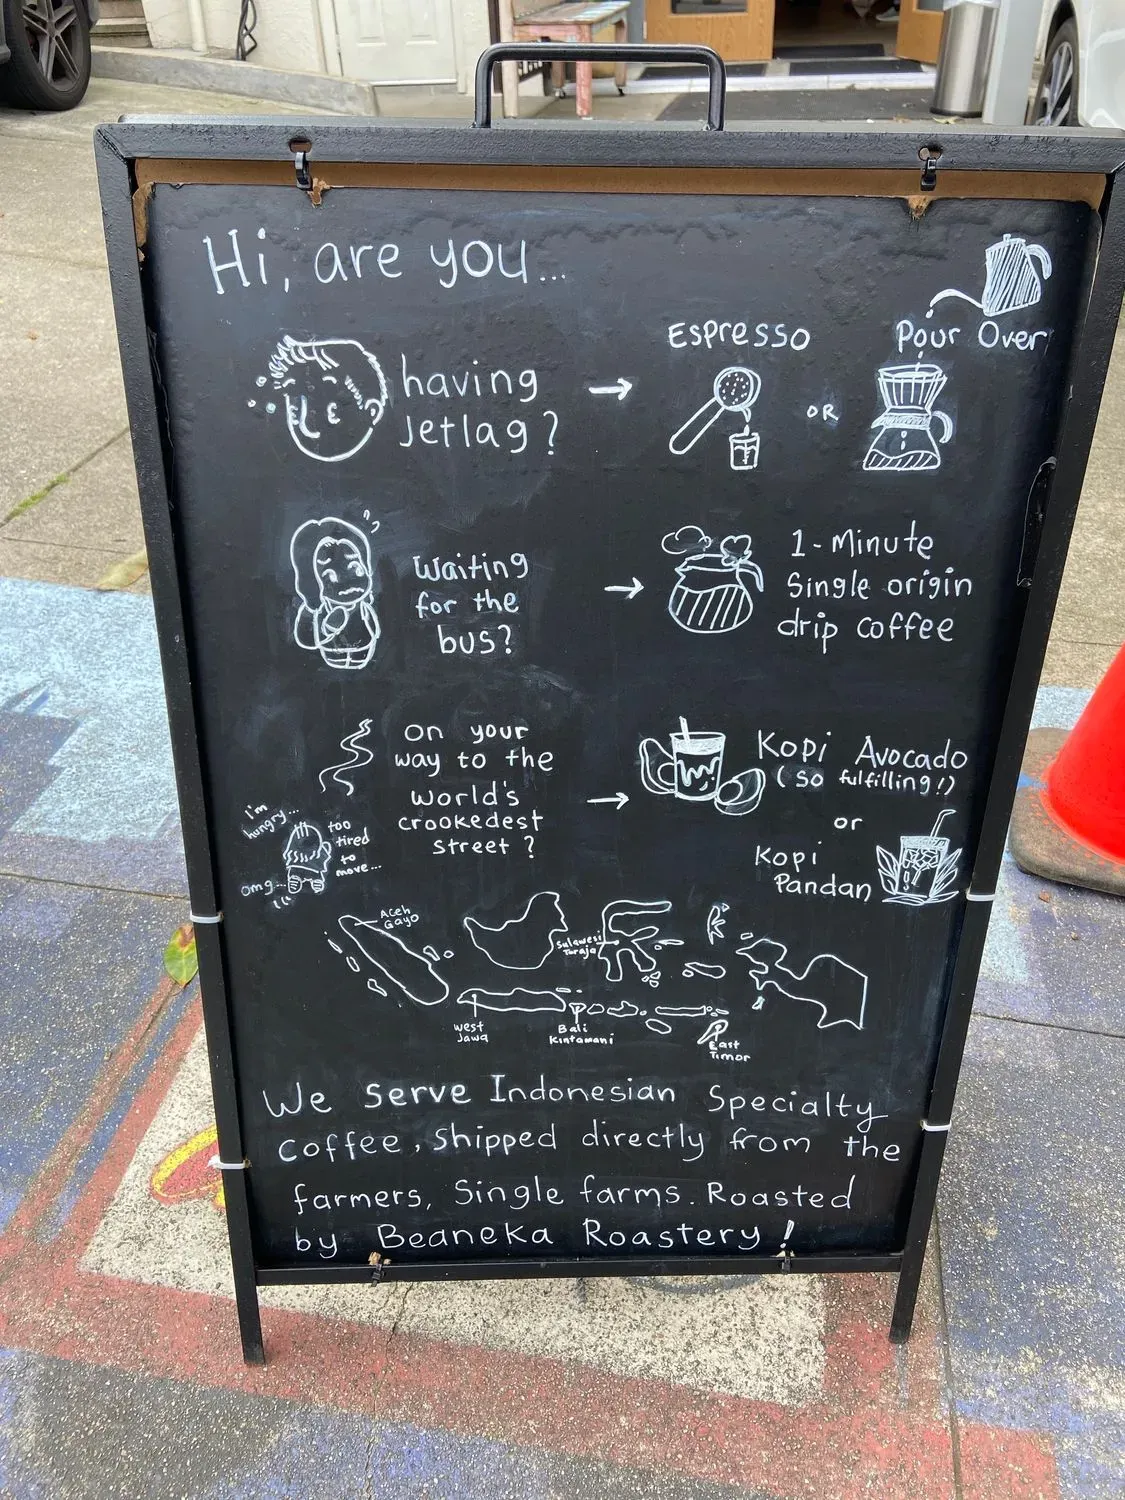 Hi, are you...
having
Jetlag?
Espresso
OR
Pour Over
Waiting
for the
bus?
1-Minute
Single origin
drip coffee
On your
way to the
world's
crookedest
street?
I'm
hungry...
too
tired
to
move...
omg...
Kopi Avocado
(so fulfilling!)
or
Kopi
Pandan
Aceh
Gayo
Sulawesi
Toraja
West
Jawa
Bali
Kintamani
East
Timor
We serve Indonesian Specialty
coffee, shipped directly from the
farmers, Single farms. Roasted
by Beaneka Roastery!